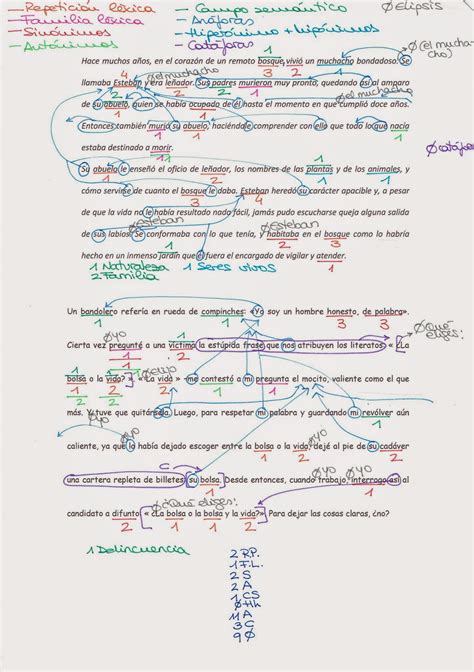 — Repetición léxica — Campo semántico Ø Elipsis
— Familia léxica — Anáforas
— Sinónimos — Hiperónimo + hipónimos
— Antónimos — Catáforas
Ø (el muchacho)
Hace muchos años, en el corazón de un remoto bosque, vivió un muchacho bondadoso. Se
Ø el muchacho
llamaba Esteban y era leñador. Sus padres murieron muy pronto, quedando así al amparo
Ø el muchacho
de su abuelo, quien se había ocupado de él hasta el momento en que cumplió doce años.
Entonces también murió su abuelo, haciéndole comprender con ello que todo lo que nacía
estaba destinado a morir.
Su abuelo le enseñó el oficio de leñador, los nombres de las plantas y de los animales, y
cómo servirse de cuanto el bosque le daba. Esteban heredó su carácter apacible y, a pesar
de que la vida no le había resultado nada fácil, jamás pudo escucharse queja alguna salida
Ø Esteban Ø Esteban
de sus labios. Se conformaba con lo que tenía, y habitaba en el bosque como lo habría
hecho en un inmenso jardín que él fuera el encargado de vigilar y atender.
1 Naturaleza 1 Seres vivos
2 Familia
Un bandolero refería en rueda de compinches: «Yo soy un hombre honesto, de palabra».
Ø yo
Ø ¿Qué eliges:
Cierta vez pregunté a una víctima la estúpida frase que nos atribuyen los literatos: «¿La
bolsa o la vida?». «La vida» –me contestó a mi pregunta el mocito, valiente como el que
más. Y tuve que quitársela. Luego, para respetar mi palabra y guardando mi revólver aún
Ø yo Ø yo
caliente, ya que lo había dejado escoger entre la bolsa o la vida, dejé al pie de su cadáver
C Ø yo Ø yo
una cartera repleta de billetes: su bolsa. Desde entonces, cuando trabajo, interrogo así al
Ø ¿Qué eliges:
candidato a difunto: « ¿La bolsa o la bolsa y la vida?». Para dejar las cosas claras, ¿no?
1 Delincuencia
2 R.P.
1 F.L.
2 S
2 A
1 CS
Ø Hh
11 A
3 C
9 Ø